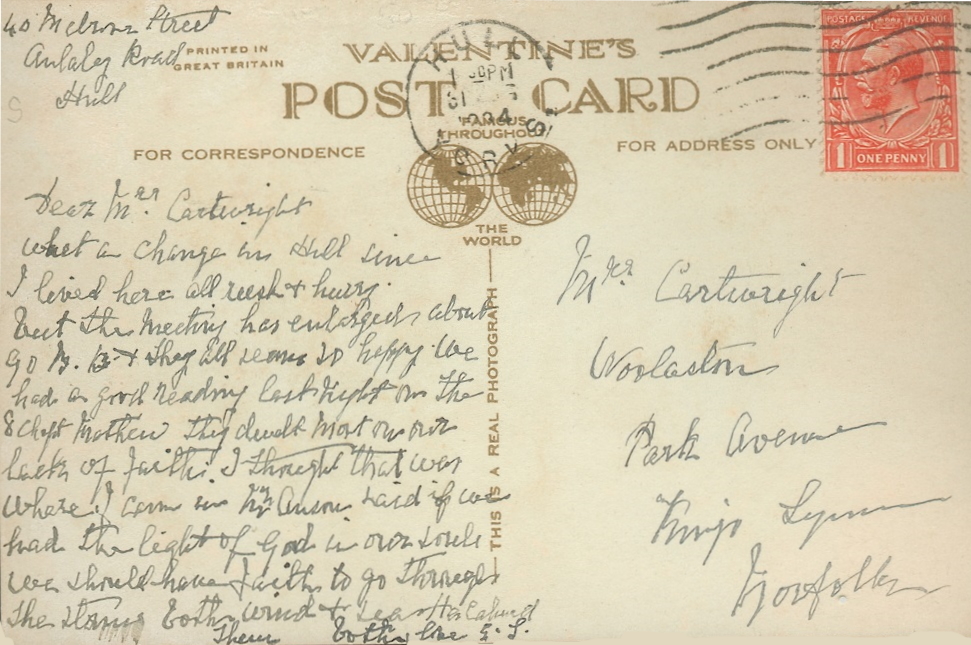 40 Melrose Street
Anlaby Road
Hull
PRINTED IN
GREAT BRITAIN
VALENTINE'S
POST CARD
FAMOUS
THROUGHOUT
THE
WORLD
FOR CORRESPONDENCE
FOR ADDRESS ONLY
HULL
31
POSTAGE REVENUE
1 ONE PENNY 1
THIS IS A REAL PHOTOGRAPH
Dear Mrs. Cartwright
what a change in Hull since
I lived here all rush & hurry.
but the Meeting has enlarged about
90 B. B & they all seem so happy. We
had a good reading last night on the
8 chapt Mathew They dwelt most on our
lack of faith. I thought that was
where I came in Mr said if we
had the light of God in our souls
we should have faith to go through
the storms both wind & sea He Calmed
them both love E. S.
Mrs Cartwright
Woolaston
Park Avenue
Kings Lynn
Norfolk